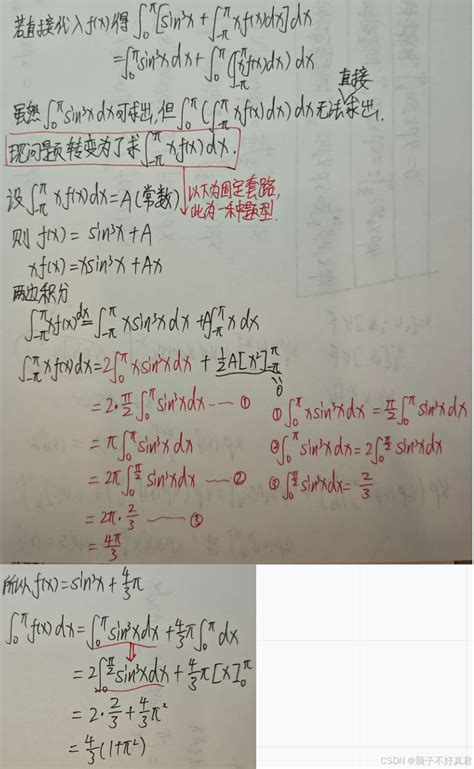 若直接代入f(x)得 ∫₀^π[sin³x+∫_{-π}^π xf(x)dx]dx
=∫₀^π sin³x dx+∫₀^π(∫_{-π}^π xf(x)dx)dx
虽然∫₀^π sin³x dx可求出,但∫₀^π(∫_{-π}^π xf(x)dx)dx无法直接求出.
现问题转变为了求∫_{-π}^π xf(x)dx.
设∫_{-π}^π xf(x)dx=A(常数)
以下为固定套路,
此为一种题型.
则 f(x)=sin³x+A
xf(x)=xsin³x+Ax
两边积分
∫_{-π}^π xf(x)dx=∫_{-π}^π xsin³x dx+A∫_{-π}^π x dx
∫_{-π}^π xf(x)dx=2∫₀^π xsin³x dx+½A[x²]_{-π}^π
0
=2·π/2∫₀^π sin³x dx——①
=π∫₀^π sin³x dx
=2π∫₀^{π/2} sin³x dx——②
=2π·2/3——③
=4π/3
①∫₀^π xsin³x dx=π/2∫₀^π sin³x dx
②∫₀^π sin³x dx=2∫₀^{π/2} sin³x dx
③∫₀^{π/2} sin³x dx=2/3
所以f(x)=sin³x+4/3π
∫₀^π f(x)dx=∫₀^π sin³x dx+4/3π∫₀^π dx
=2∫₀^{π/2} sin³x dx+4/3π[x]₀^π
=2·2/3+4/3π²
=4/3(1+π²)
CSDN @脑子不好真君